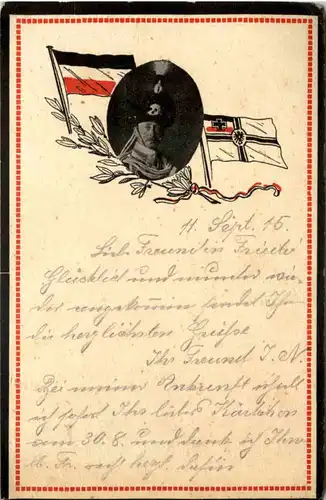 11. Sept. 15.
Liebe Freundin Friedel
Glücklich und munter wie-
der angekommen sendet Ihn
die herzlichsten Grüße
Ihr Freund J. N.
Bei meiner Ankunft erhielt
ich sofort Ihr liebes Kärtchen
vom 30. 8. und danke ich Ihnen
l. Fr. recht herzl. dafür